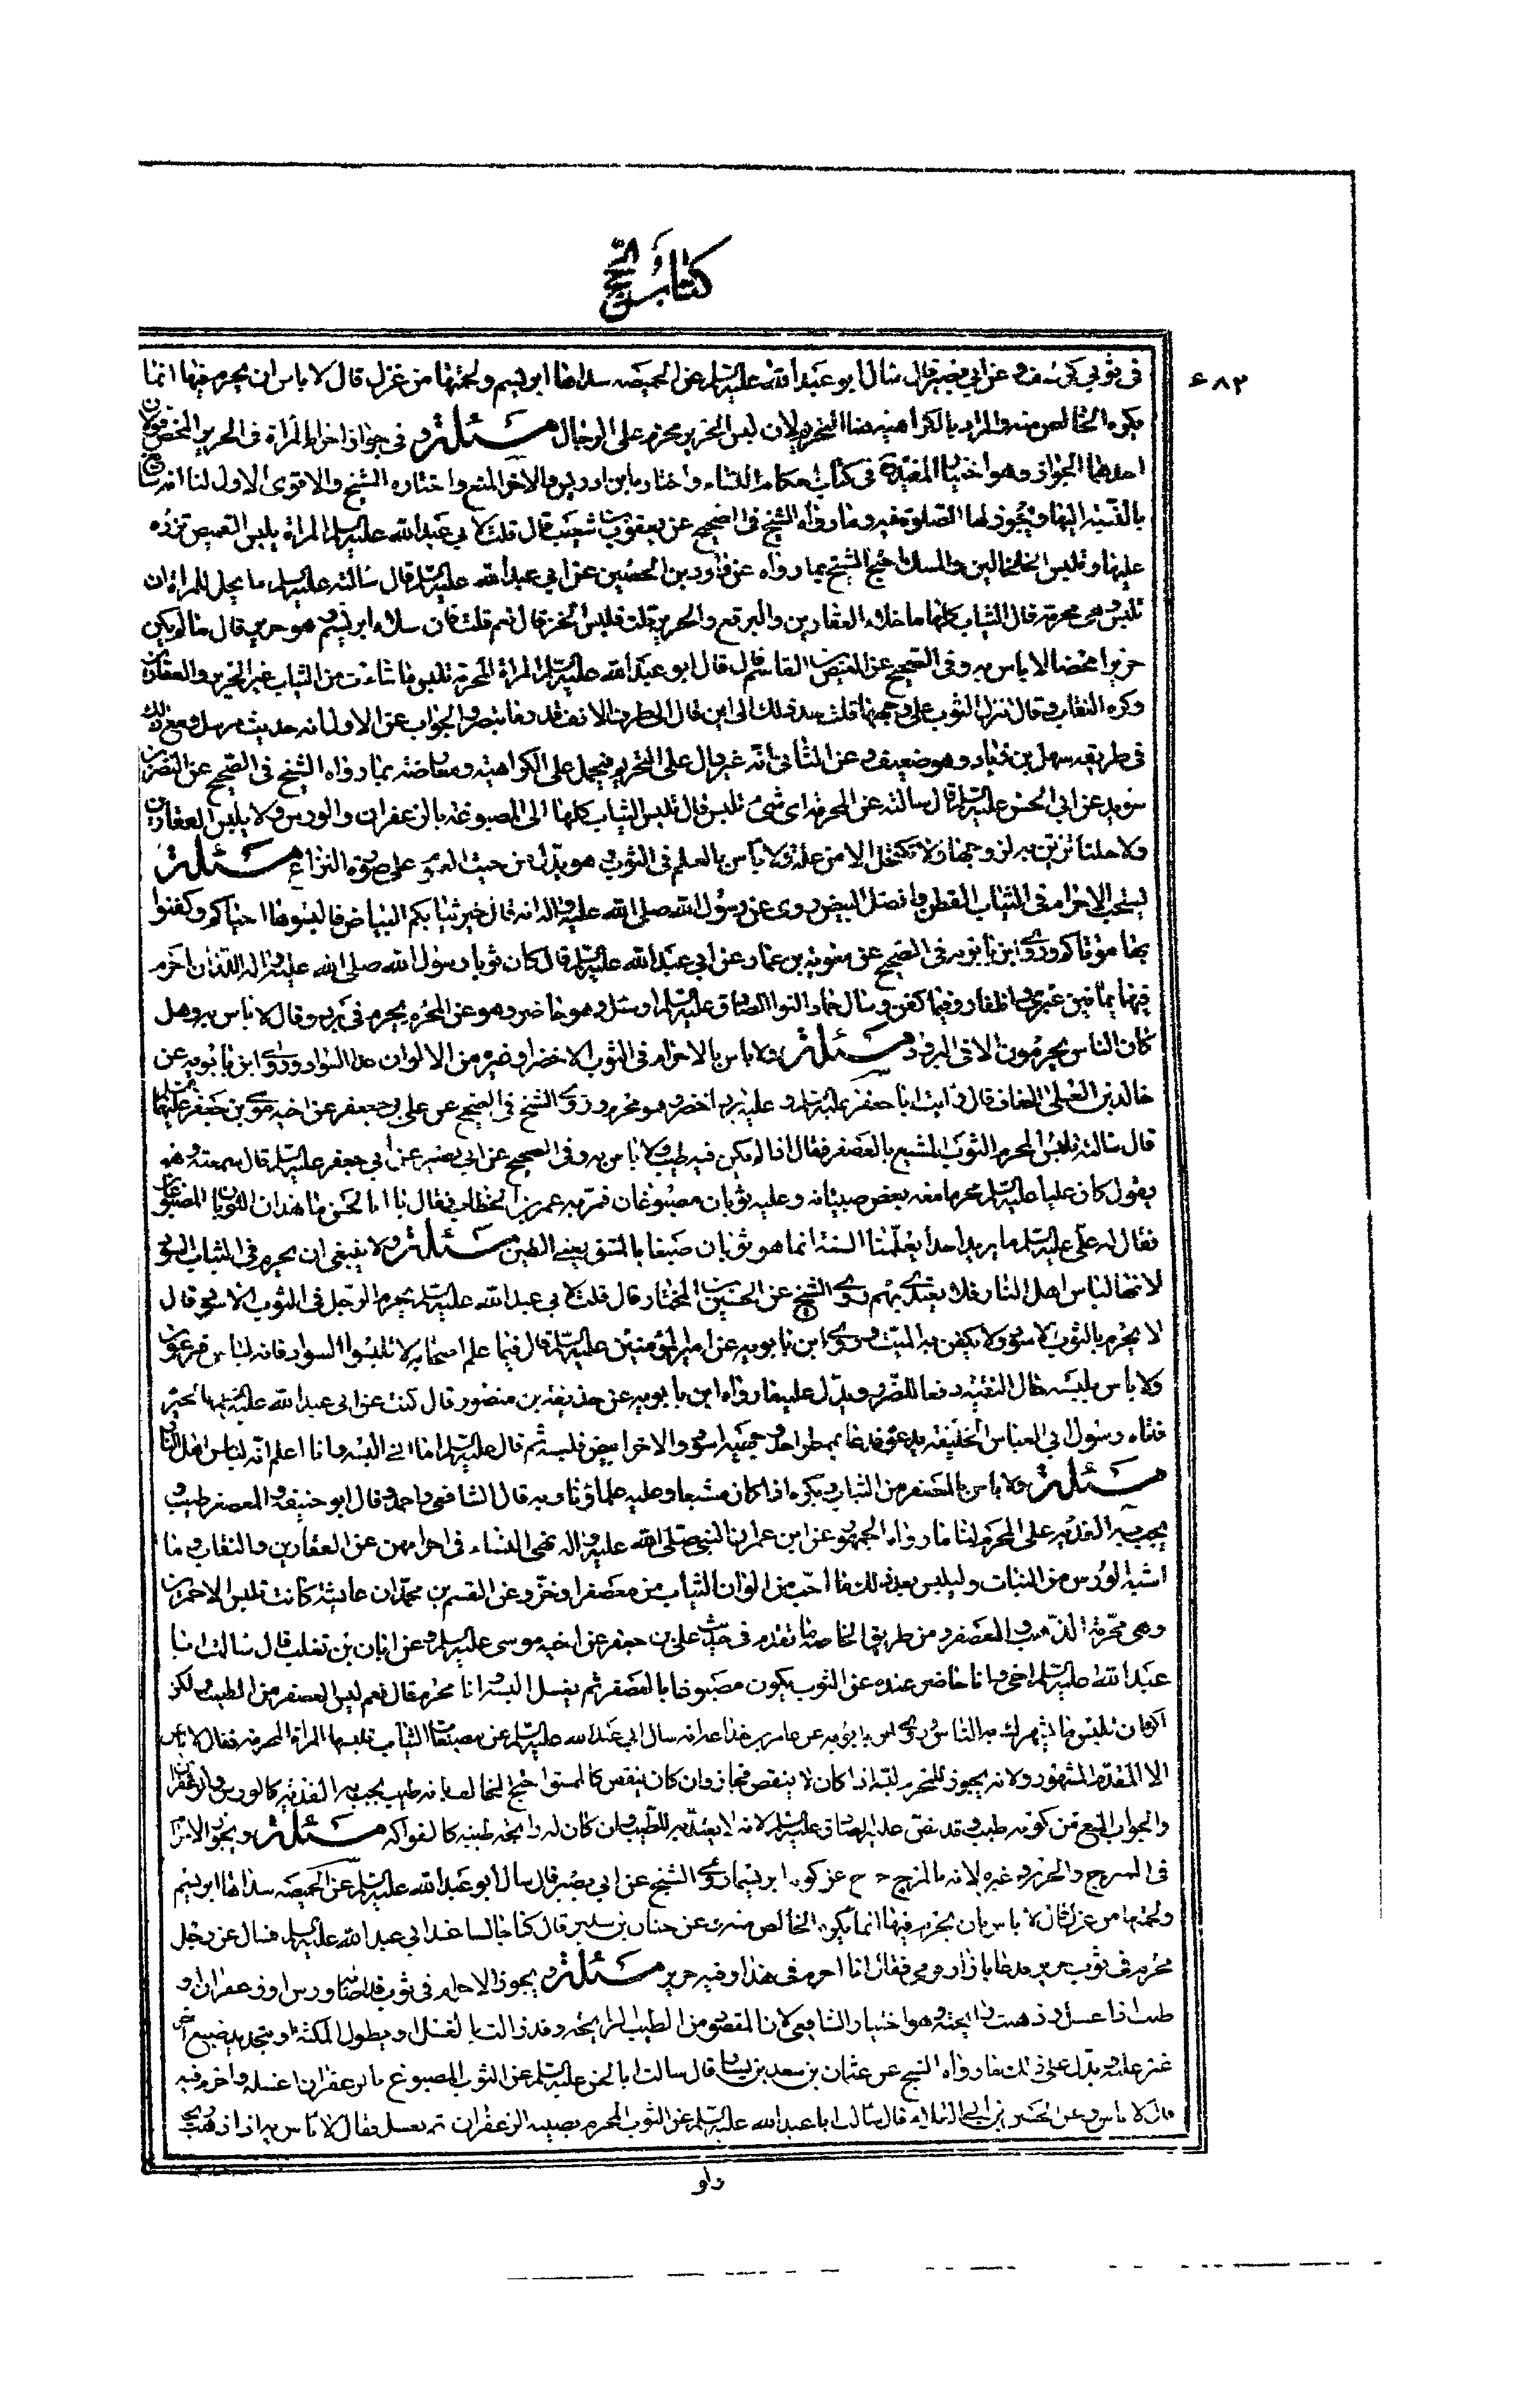 كتاب الحج
٦٨٣
في ثوبي كرسف وعن ابي بصير قال سال ابو عبد الله عليه السلم عن الخميصة سداها ابريسم ولحمتها من غزل قال لا باس ان يحرم فيها انما
يكره الخالص منه والمراد بالكراهية هنا التحريم لان لبس الحرير محرم على الرجال مسئلة وفي جواز احرام المراة في الحرير المحض قولان
احدهما الجواز وهو اختيار المفيد ره في كتاب احكام النساء واختاره ابن ادريس والاخر المنع واختاره الشيخ والاقوى الاول لنا انه سايغ
بالنسبة اليها ويجوز لها الصلوة فيه وما رواه الشيخ في الصحيح عن يعقوب بن شعيب قال قلت لابي عبد الله عليه السلم المراة يلبس القميص تزره
عليها وتلبس الخلخالين والمسك احتج الشيخ بما رواه عن داود بن الحصين عن ابي عبد الله عليه السلم قال سالته عليه السلم ما يحل للمراة ان
تلبس وهي محرمة قال الثياب كلها ما خلا القفازين والبرقع والحرير قلت تلبس الخز قال نعم قلت فان سداه ابريسم وهو حرير قال ما لم يكن
حريرا محضا لا باس به وفي الصحيح عن العيص بن القاسم قال قال ابو عبد الله عليه السلم المراة المحرمة تلبس ما شاءت من الثياب غير الحرير والقفازين
وكره النقاب وقال تنزل الثوب على وجهها قلت حد ذلك الى اين قال الى طرف الانف قدر ما تبصر والجواب عن الاول انه حديث مرسل ومع ذلك
في طريقه سهل بن زياد وهو ضعيف وعن الثاني انه غير دال على التحريم فيحمل على الكراهية ومعارضته بما رواه الشيخ في الصحيح عن النضر بن
سويد عن ابي الحسن عليه السلم قال سالته عن المحرمة اي شئ تلبس قال تلبس الثياب كلها الى المصبوغة بالزعفران والورس ولا يلبس القفازين
ولا حليا تزين به لزوجها ولا تكتحل الا من علة ولا باس بالعلم في الثوب وهو يدل من حيث العموم على صورة النزاع مسئلة
يستحب الاحرام في الثياب القطن وافضل البيض روى عن رسول الله صلى الله عليه واله انه قال خير ثيابكم البياض فالبسوها احياكم وكفنوا
بها موتاكم وروى ابن بابويه في الصحيح عن معوية بن عمار عن ابي عبد الله عليه السلم قال كان ثوبا رسول الله صلى الله عليه واله اللذان احرم
فيهما يمانيين عبري واظفار وفيهما كفن وسال حماد النوا الصادق عليه السلم او سئل وهو حاضر وهو عن المحرم يحرم في برد وقال لا باس به وهل
كان الناس يحرمون الا في البرود مسئلة ولا باس بالاحرام في الثوب الاخضر وغيره من الالوان عدا السواد وروى ابن بابويه عن
خالد بن العلى الخفاف قال رايت ابا جعفر عليه السلم وعليه برد اخضر وهو محرم وروى الشيخ في الصحيح عن علي بن جعفر عن اخيه موسى بن جعفر عليهما السلم
قال سالته يلبس المحرم الثوب المشبع بالعصفر فقال اذا لم يكن فيه طيب ولا باس به وفي الصحيح عن ابي بصير عن ابي جعفر عليه السلم قال سمعته وهو
يقول كان عليا عليه السلم محرما معه بعض صبيانه وعليه ثوبان مصبوغان فمر به عمر بن الخطاب فقال يا ابا الحسن ما هذان الثوبان المصبوغان
فقال له علي عليه السلم ما يريد احدا يعلمنا السنة انما هو ثوبان صبغا بالمشق يعني الطين مسئلة ولا ينبغي ان يحرم في الثياب السود
لانها لباس اهل النار فلا يقتدى بهم روى الشيخ عن الحسين بن المختار قال قلت لابي عبد الله عليه السلم يحرم الرجل في الثوب الاسود قال
لا يحرم بالثوب الاسود ولا يكفن به الميت وروى ابن بابويه عن امير المؤمنين عليه السلم قال فيما علم اصحابه لا تلبسوا السواد فانه لباس فرعون
ولا باس بلبسه حال التقية دفعا للضرر ويدل عليه ما رواه ابن بابويه عن حذيفة بن منصور قال كنت عن ابي عبد الله عليه السلم بالحيرة
فتاه رسول ابي العباس الخليفة يدعوه فدعا بممطر احد وجهيه اسود والاخر ابيض فلبسه ثم قال عليه السلم اما اني البسه وانا اعلم انه لباس اهل النار
مسئلة ولا باس بالمعصفر من الثياب ويكره اذا كان مشبعا وعليه علماؤنا وبه قال الشافعي واحمد وقال ابو حنيفة والمعصفر طيب و
يجب به الفدية على المحرم لنا ما رواه الجمهور عن ابن عمر ان النبي صلى الله عليه واله نهى النساء في احرامهن عن القفازين والنقاب وما
اشبه الورس من النبات وليلبس بعد ذلك ما احب من الوان الثياب من معصفر او خز وعن القسم بن محمد ان عايشة كانت تلبس الاحمرين
وهي محرمة الذهب والمعصفر ومن طريق الخاصة ما تقدم في حديث علي بن جعفر عن اخيه موسى عليه السلم وعن ابان بن تغلب قال سالت ابا
عبد الله عليه السلم اخي وانا حاضر عنده عن الثوب يكون مصبوغا بالعصفر ثم يغسل البسه وانا محرم قال نعم ليس العصفر من الطيب ولكن
اكره ان تلبس ما يشهرك به الناس وروى ابن بابويه عن عامر بن جذاعة انه سال ابي عبد الله عليه السلم عن مصبغات الثياب تلبسها المراة المحرمة فقال لا باس
الا المفدم المشهور ولانه يجوز للمحرم لبسه اذا كان لا ينقض فجاز وان كان ينقض كالمستو احتج المخالف بانه طيب يجب به الفدية كالورس والزعفران
والجواب المنع من كونه طيب وقد نص عليه الصادق عليه السلم لانه لا يعتد به للطيب وان كان له رايحة طيبة كالفواكه مسئلة ويجوز الاحرام
في الممزوج والحرير وغيره لانه بالمزج خرج عن كونه ابريسما روى الشيخ عن ابي بصير قال سال ابو عبد الله عليه السلم عن الخميصة سداها ابريسم
ولحمتها من غزل قال لا باس بان يحرم فيها انما يكره الخالص منه وعن حنان بن سدير قال كنا جالسا عند ابي عبد الله عليه السلم فسال عن رجل
محرم في ثوب حرير فدعا بازار فرقبي فقال انا احرم في هذا وفيه حرير مسئلة ويجوز الاحرام في ثوب قد اصابه ورس او زعفران او
طيب اذا غسل وذهبت رايحته وهو اختيار الشافعي لان المقصود من الطيب الرايحة وقد زالت بالغسل او بطول المكث او بتجديد صبغ اخر
غير عليه ويدل على ذلك ما رواه الشيخ عن عثمان بن سعد بن يسار قال سالت ابا الحسن عليه السلم عن الثوب المصبوغ بالزعفران اغسله واحرم فيه
قال لا باس به وعن الحسين بن ابي العلاء قال سالت ابا عبد الله عليه السلم عن الثوب المحرم يصيبه الزعفران ثم يغسل فقال لا باس به اذا ذهب ريحه
واو